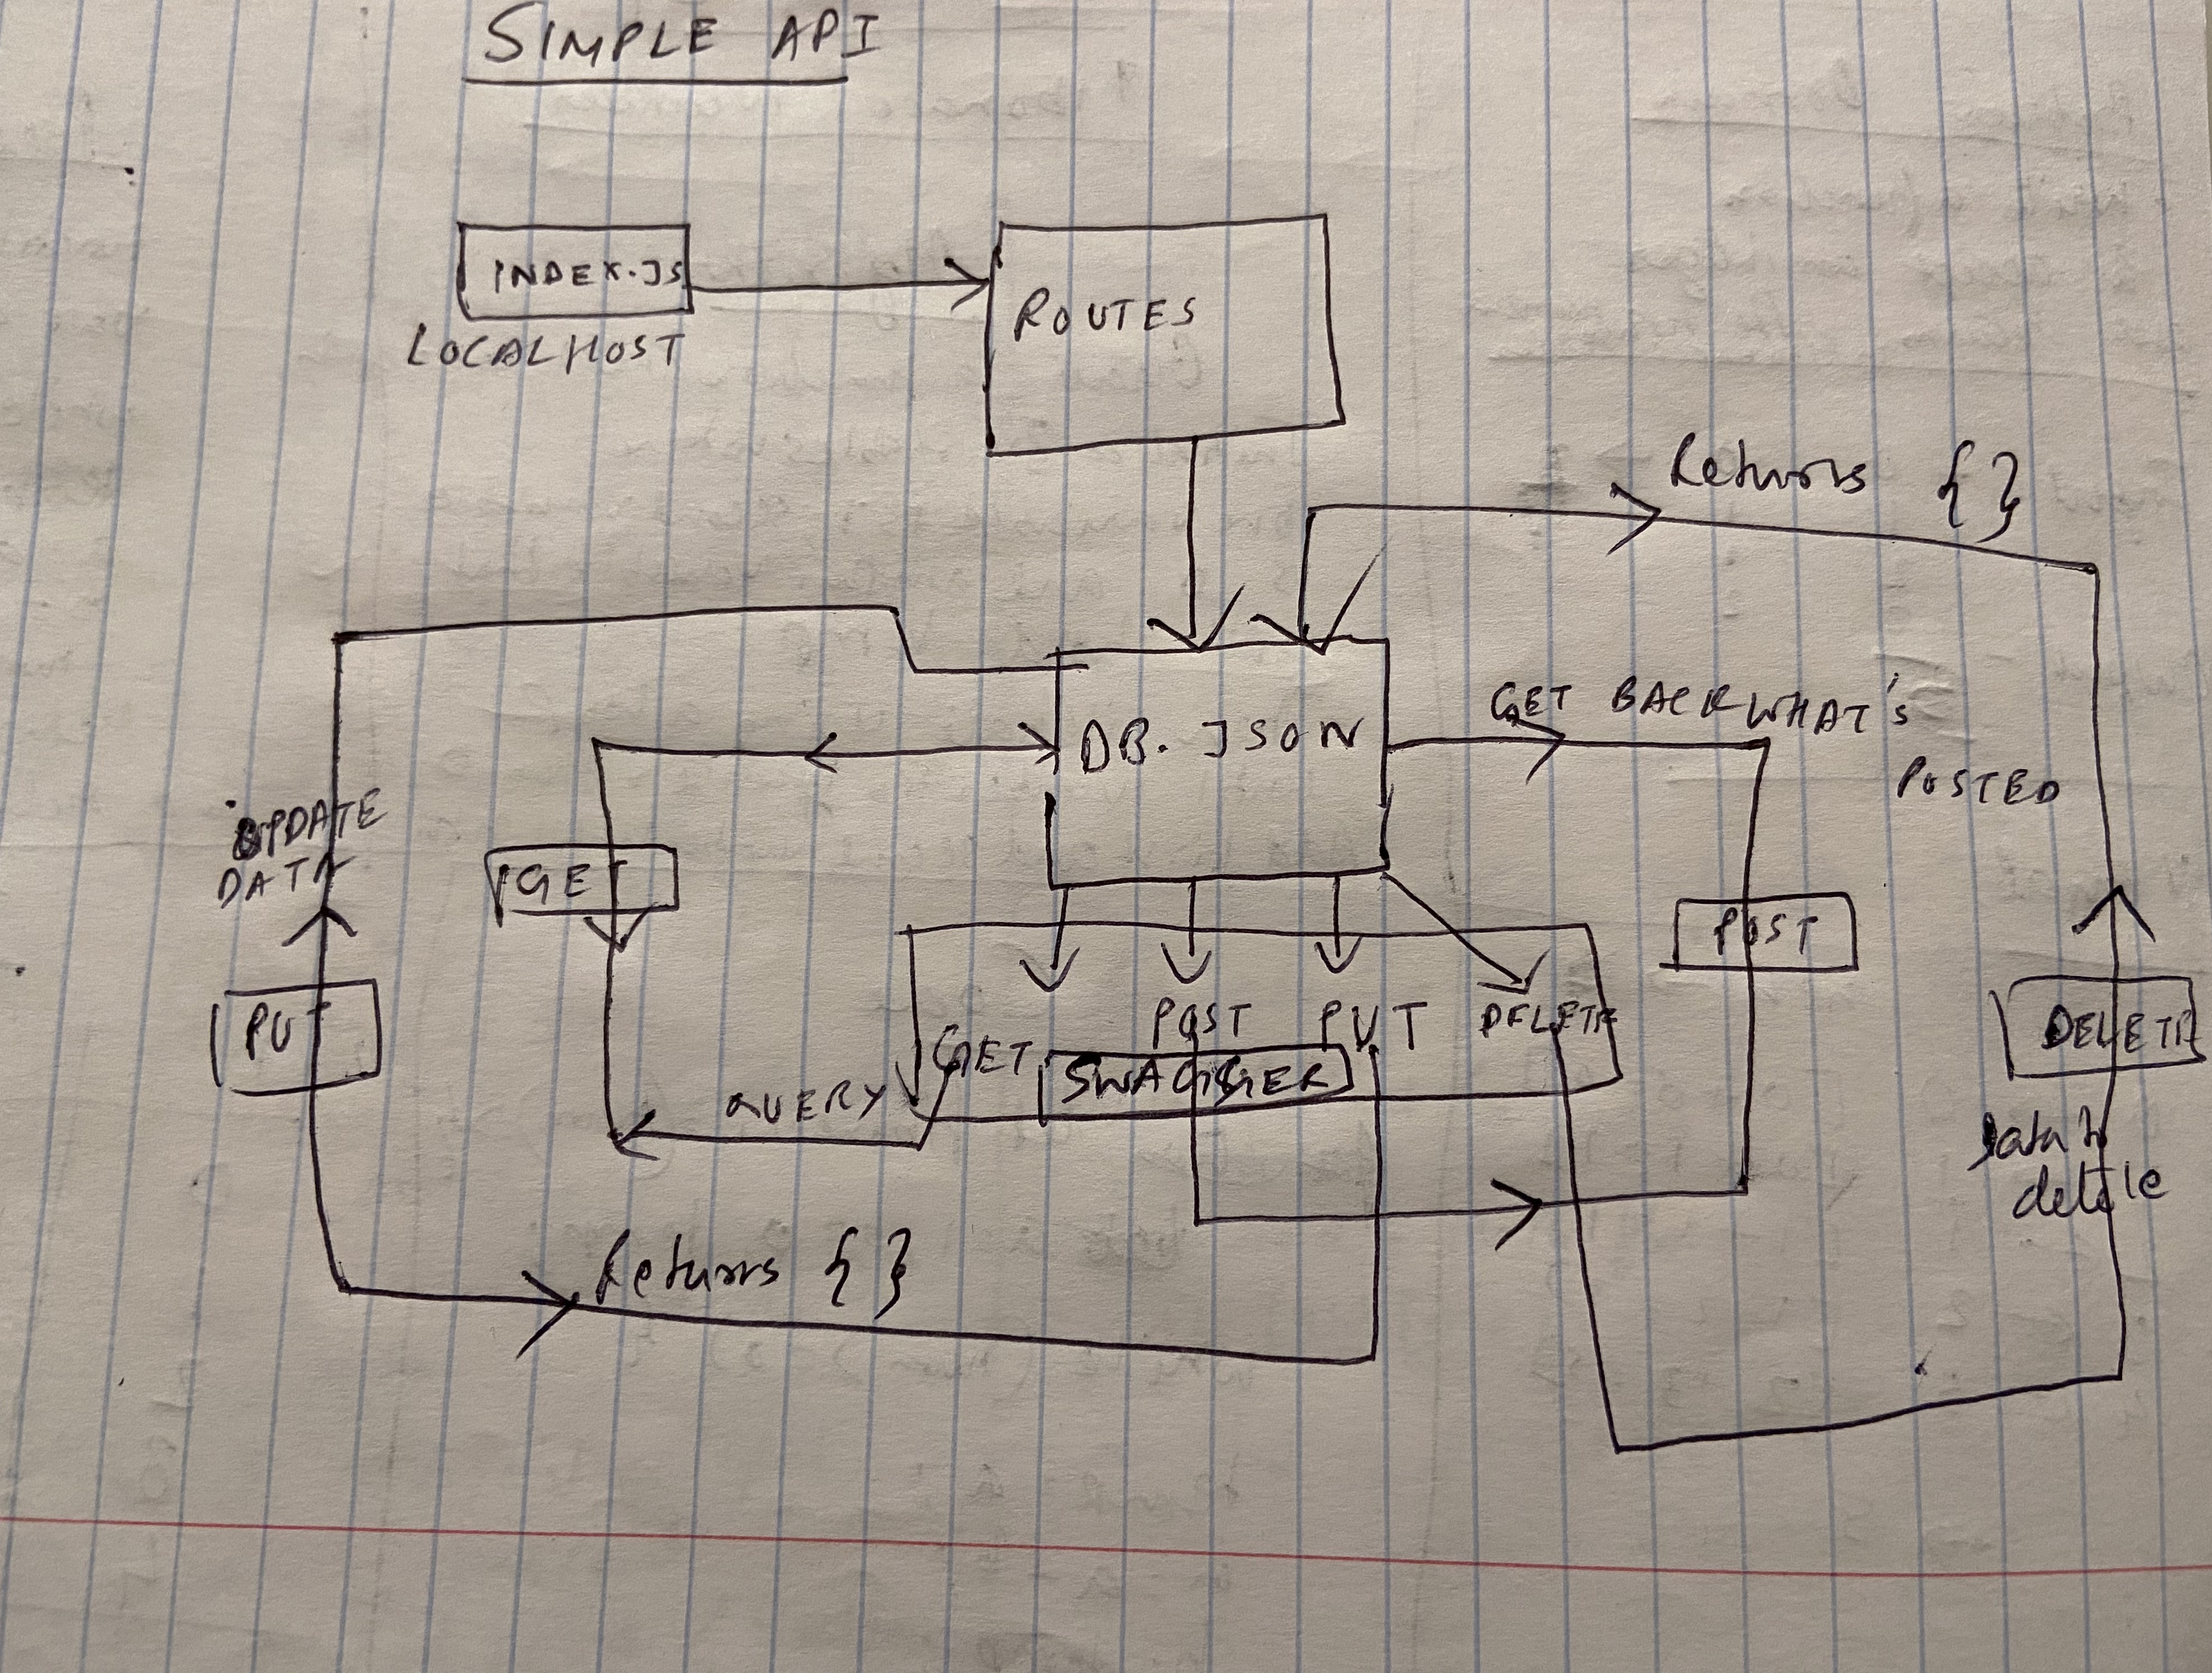 SIMPLE API
INDEX.JS
LOCALHOST
ROUTES
Returns { }
DB.JSON
GET BACK WHAT'S
POSTED
UPDATE
DATA
GET
POST
PUT
DELETE
GET
POST
PUT
DELETE
SWAGGER
QUERY
Data to
delete
Returns { }